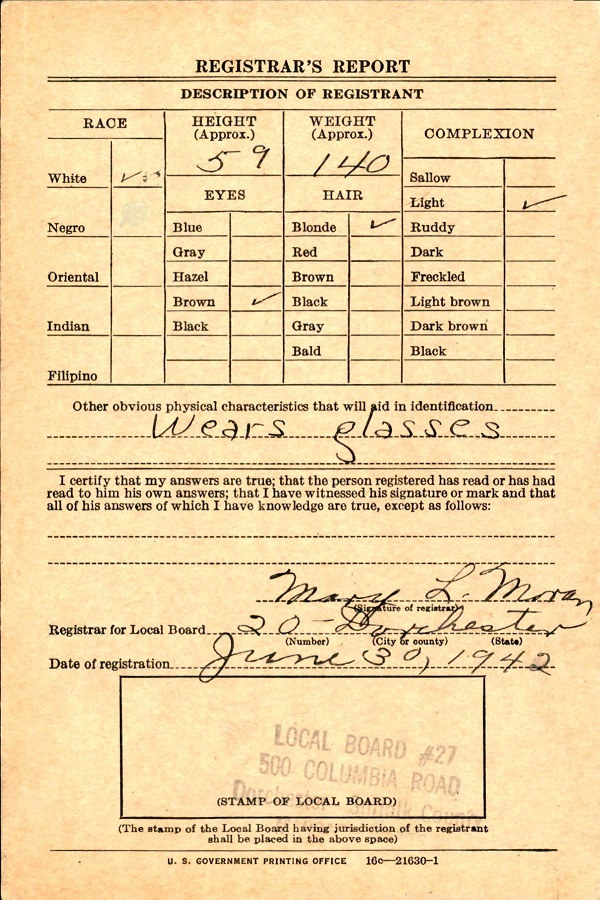 REGISTRAR'S REPORT
DESCRIPTION OF REGISTRANT
RACE
HEIGHT
(Approx.)
WEIGHT
(Approx.)
COMPLEXION
5 9
140
White ✓
Sallow
EYES
HAIR
Light ✓
Negro
Blue
Blonde ✓
Ruddy
Gray
Red
Dark
Oriental
Hazel
Brown
Freckled
Brown ✓
Black
Light brown
Indian
Black
Gray
Dark brown
Bald
Black
Filipino
Other obvious physical characteristics that will aid in identification
Wears glasses
I certify that my answers are true; that the person registered has read or has had
read to him his own answers; that I have witnessed his signature or mark and that
all of his answers of which I have knowledge are true, except as follows:
Mary L. Moran
(Signature of registrar)
Registrar for Local Board 20 - Dorchester
(Number) (City or county) (State)
Date of registration June 30, 1942
LOCAL BOARD #27
500 COLUMBIA ROAD
Dorchester Suffolk County
(STAMP OF LOCAL BOARD)
(The stamp of the Local Board having jurisdiction of the registrant
shall be placed in the above space)
U. S. GOVERNMENT PRINTING OFFICE 16c—21630-1